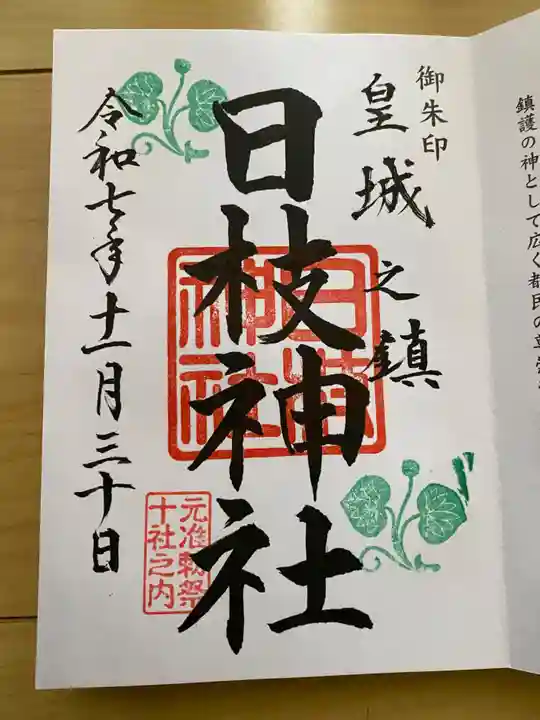 鎮護の神として広く都民の
御朱印
皇城之鎮
日枝神社
日枝神社
令和七年十一月三十日
元准勅祭
十社之内